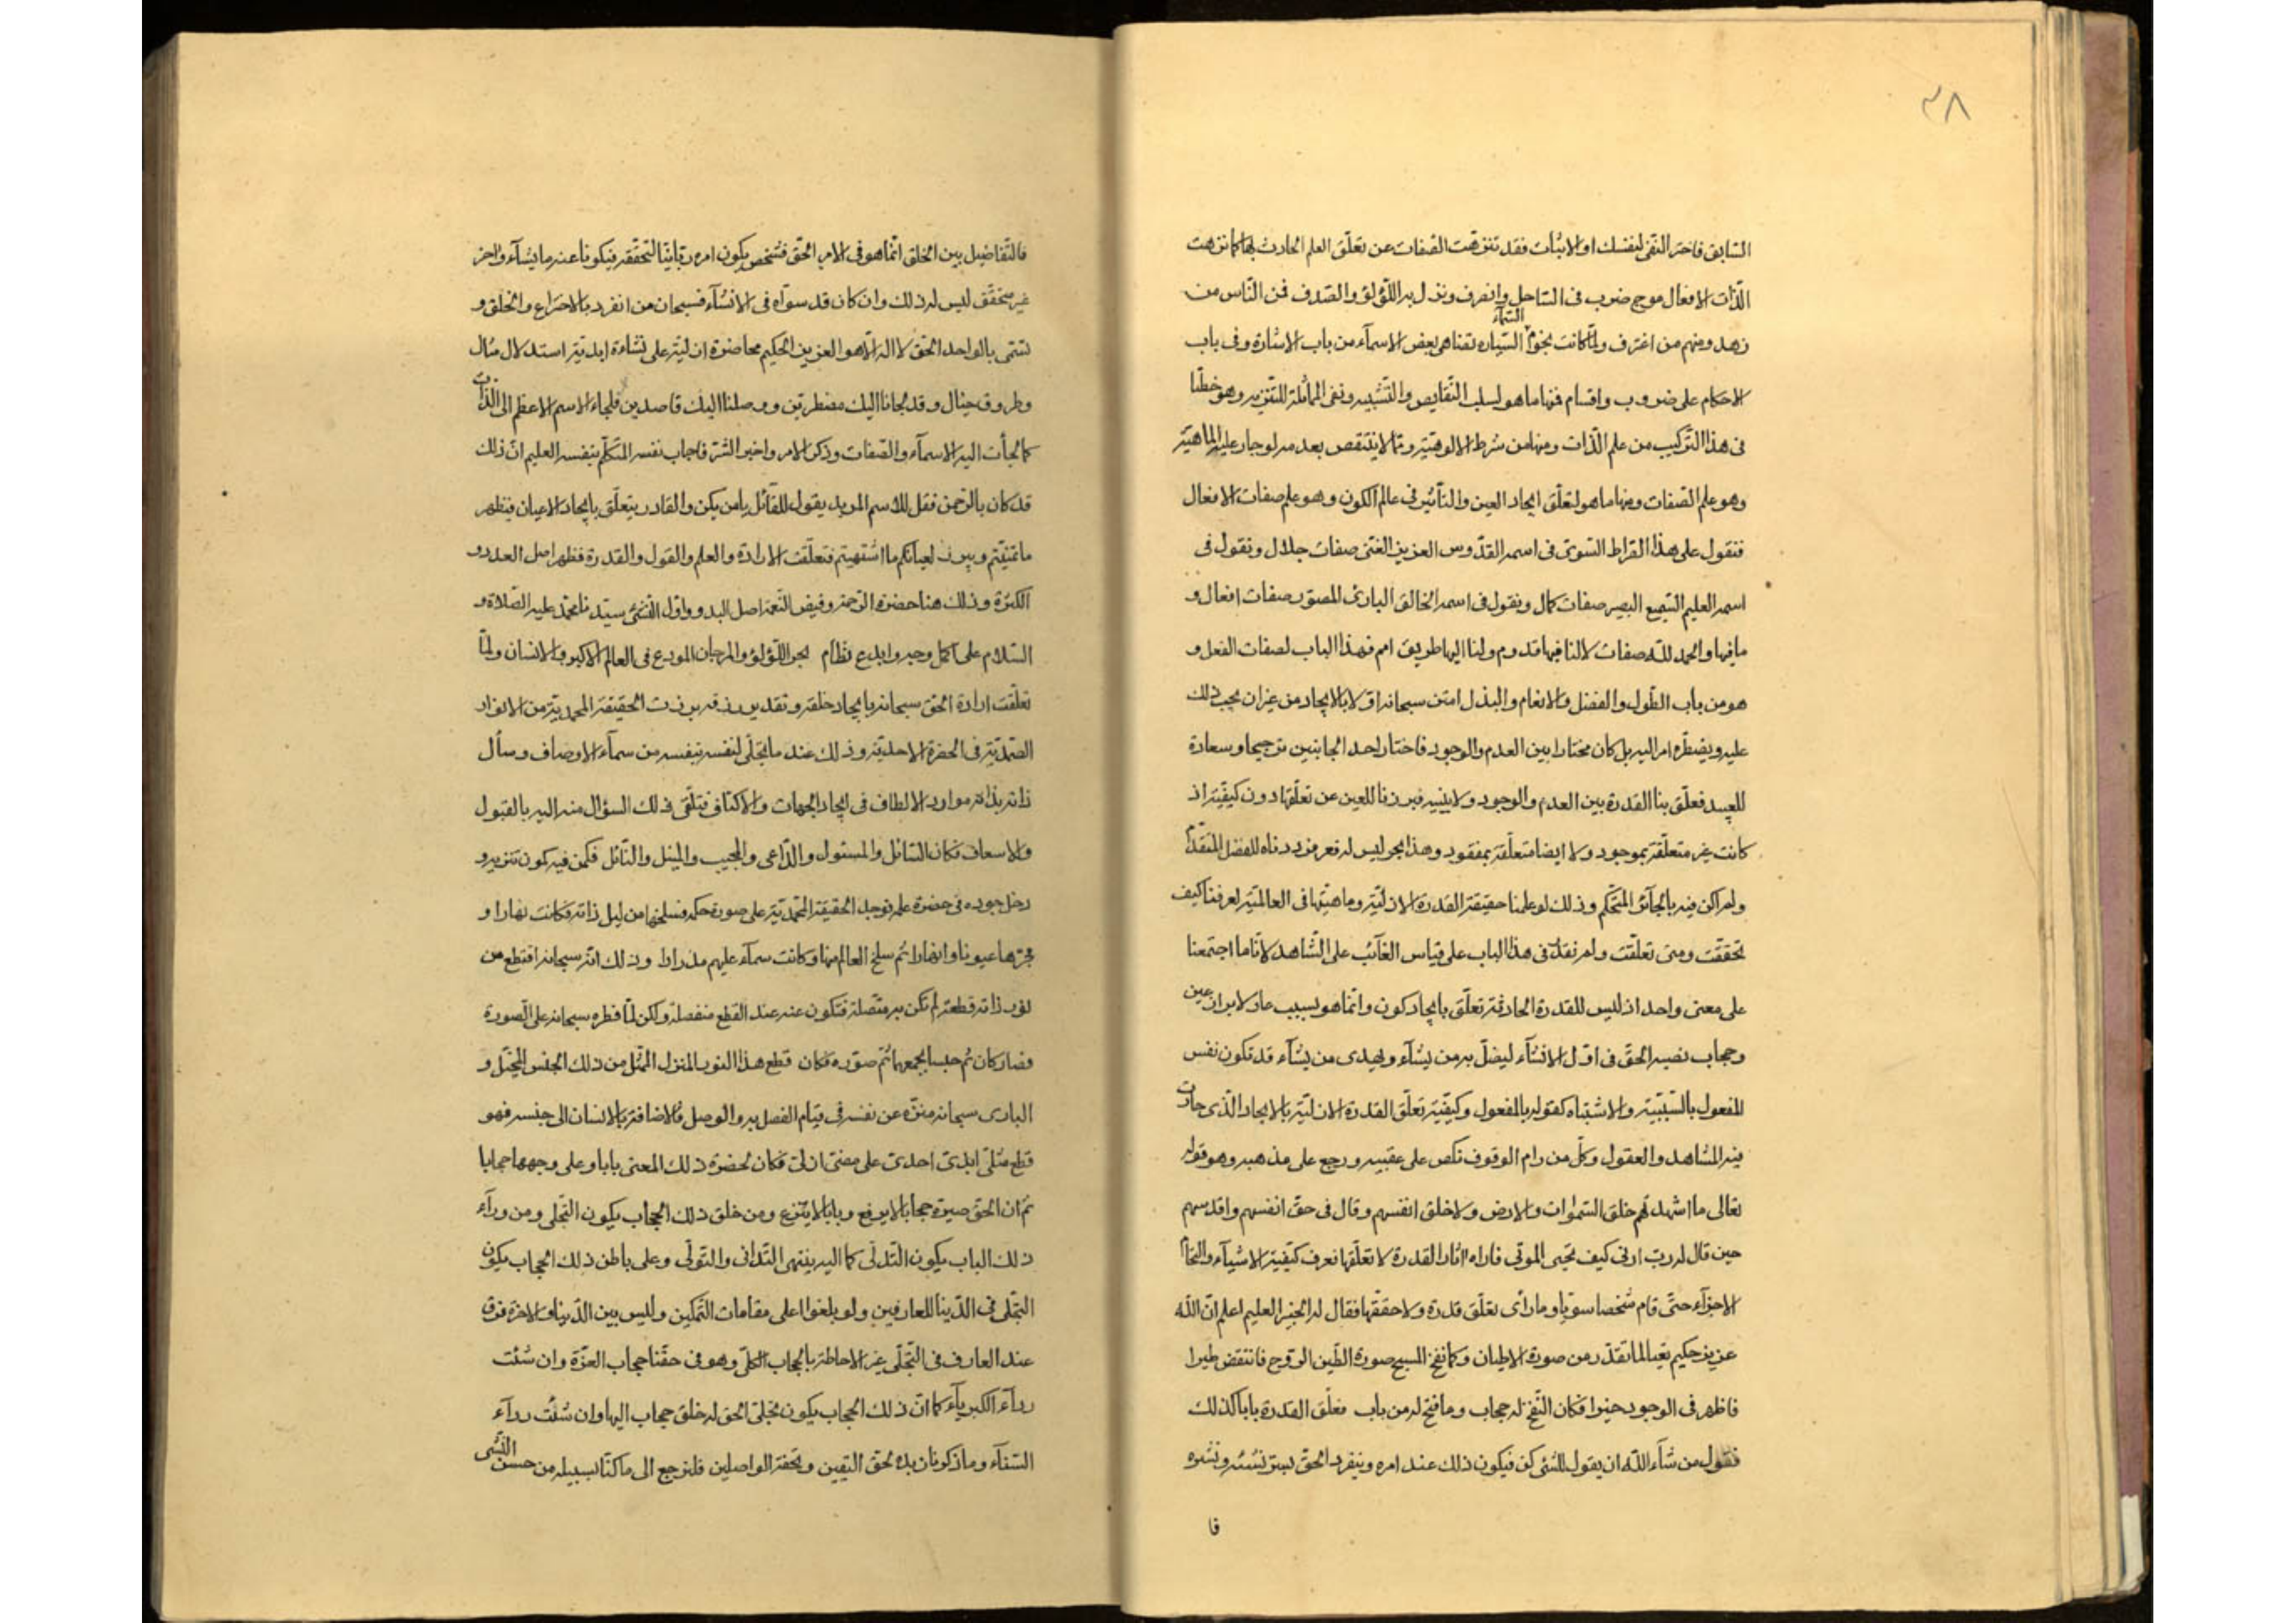 ٢٨
السابق فاختر النفى لنفسك او الاثبات فقد تنزهت الصفات عن تعلق العلم الحادث بها كما تنزهت
الذات الافعال موج ضرب فى الساحل وانصرف ونزل به اللؤلؤ والصدف فمن الناس من
زهد ومنهم من اغترف ولما كانت نجوم السماء السياره تقناهى بعض الاسماء من باب الاشارة وفى باب
الاحكام على ضروب واقسام فمنها ما هو لسلب النقايص والتشبيه ونفى المماثلة للتنزيه وهو خطنا
فى هذا التركيب من علم الذات ومنها من شرط الالوهية ومما لا ينتقص بعدمه لوجار عليه الماهية
وهو علم الصفات ومنها ما هو لتعلق ايجاد العين والتأثير فى عالم الكون وهو علم صفات الافعال
فنقول على هذا القراط السوى فى اسمه القدوس العزيز الغنى صفات جلال ونقول فى
اسمه العليم السميع البصير صفات كمال ونقول فى اسمه الخالق البارئ المصور صفات افعال و
ما فيها والحمد لله صفات لالنا فيها قدم ولنا اليها طريق امم فهذا الباب لصفات الفعل و
هو من باب الطول والفضل والانعام والبذل امتن سبحانه اولا بالايجاد من غير ان يجب ذلك
عليه ويضطره امر اليه بل كان مختارا بين العدم والوجود فاختار احد الجانبين ترجيحا وسعادة
للعبيد فعلق بنا القدرة بين العدم والوجود ولا بينيه فبرزنا للعين عن تعلقها دون كيفية اذ
كانت غير متعلقة بموجود ولا ايضا متعلقة بمفقود وهذا بحر ليس له قعر فرددناه للفضل المتقدم
ولم اكن فيه بالجائر المتحكم وذلك لو علمنا حقيقة القدرة الازلية وماهيتها فى العالمية لعرفنا كيف
تحققت ومتى تعلقت ولم نقل فى هذا الباب على قياس الغائب على الشاهد لاننا ما اجتمعنا
على معنى واحد اذ ليس للقدرة الحادثة تعلق بايجاد كون وانما هو بسبب عاد لابراز عين
وحجاب نصبه الحق فى اول الانشاء ليضل به من يشاء ويهدى من يشاء قد تكون نفس
المفعول بالسببية والاشتباه كقوله بالمفعول وكيفية تعلق القدرة الازلية بالايجاد الذى حارت
فيه المشاهد والعقول وكل من رام الوقوف نكص على عقبيه ورجع على مذهبه وهو قوله
تعالى ما اشهدتهم خلق السموات والارض ولا خلق انفسهم وقال فى حق انفسهم واقدسهم
حين قال له رب ارنى كيف تحيى الموتى فاراه اثار القدرة لا تعلقها نعرف كيفية الاشياء والتحام
الاجزاء حتى قام شخصا سويا وما رأى تعلق قدرة ولا حققها فقال له الخبير العليم اعلم ان الله
عزيز حكيم نعيا لما تقدر من صورة الاطيان وكما نفخ المسيح صورة الطين الروح فانتفض طيرا
فاظهر فى الوجود حينوا فكان النفخ له حجاب وما فتح له من باب فعلق القدرة بابا كذلك
فنقول من شاء الله ان يقول للشئ كن فيكون ذلك عند امره وينفرد الحق بسر نشئه ونشره
فا
فالتفاضيل بين الخلق انما هو فى الامر الحق فشخص يكون امره ربانيا لتحققه فيكونا عنه ما يشاء واخر
غير محقق ليس له ذلك وان كان قد سواه فى الانشاء فسبحان من انفرد بالاختراع والخلق و
تسمى بالواحد الحق لا اله الا هو العزيز الحكيم محاضرة ازلية على نشاءة ابدية استدلال مثال
وطروق خيال وقد لجانا اليك مضطرين ووصلنا اليك قاصدين فلجاء الاسم الاعظم الى الذات
كما لجأت اليه الاسماء والصفات وذكر الامر واخبر السر فاجاب نفسه المتكلم بنفسه العليم ان ذلك
قد كان بالرحمن فقل للاسم المريد يقول للقائل يامر بكن والقادر يتعلق بايجاد الاعيان فيظهر
ما تمنيتم ويبرز لعيانكم ما اشتهيتم فتعلقت الارادة والعلم والقول والقدرة فظهر اصل العدد و
الكثرة وذلك هنا حضرة الرحمة وفيض النعمة اصل البدو واول النشئ سيدنا محمد عليه الصلاة و
السلام على اكمل وجه وابدع نظام بحر اللؤلؤ والمرجان المودع فى العالم الاكبر والانسان ولما
تعلقت ارادة الحق سبحانه بايجاد خلقه وتقدير رزقه برزت الحقيقة المحمدية من الانوار
الصمدية فى الحضرة الاحدية وذلك عند ما تجلى لنفسه بنفسه من سماء الاوصاف وسأل
ذاته بذاته موارد الالطاف فى ايجاد الجهات والاكناف فتلقى ذلك السؤال منه اليه بالقبول
والاسعاف فكان السائل والمسئول والداعى والمجيب والمنيل والنائل فكمن فيه كمون تنزيه و
دخل جوده فى حضرة علمه فوجد الحقيقة المحمدية على صورة حكمه فسلخها من ليل ذاته فكانت نهارا و
فجرها عيونا وانهارا ثم سلخ العالم منها وكانت سماء عليهم مدرارا وذلك انه سبحانه اقتطع من
نور ذاته قطعة لم تكن به متصلة فتكون عنه عند القطع منفصلة ولكن لما فطره سبحانه على الصورة
فصار كان ثم جنسا يجمعهما ثم صوره فكان قطع هذا النور المنزل الممثل من ذلك الجنس المتخيل و
البارى سبحانه منزه عن نفسه فى قيام الفصل به والوصل والاضافة بالانسان الى جنسه فهو
قطع مثلى ابدى احدى على معنى ازلى فكان لحضرة ذلك المعنى بابا وعلى وجهها حجابا
ثم ان الحق صيره حجابا لا يرفع وبابا لا يتنزع ومن خلق ذلك الحجاب يكون التجلى ومن وراء
ذلك الباب يكون التدلى كما اليه ينتهى التدانى والتولى وعلى باطن ذلك الحجاب يكون
التجلى فى الدنيا للعارفين ولو بلغوا اعلى مقامات التمكين وليس بين الدنيا والاخرة فرق
عند العارف فى التجلى غير الاحاطة بالحجاب الكلى وهو فى حقنا حجاب العزة وان شئت
رداء الكبرياء كما ان ذلك الحجاب يكون تجلى الحق له خلق حجاب اليها وان شئت رداء
السناء وما ذكرنا زبدة لحق اليقين وتحفة الواصلين فلنرجع الى ما كنا بسبيله من حسن النشى